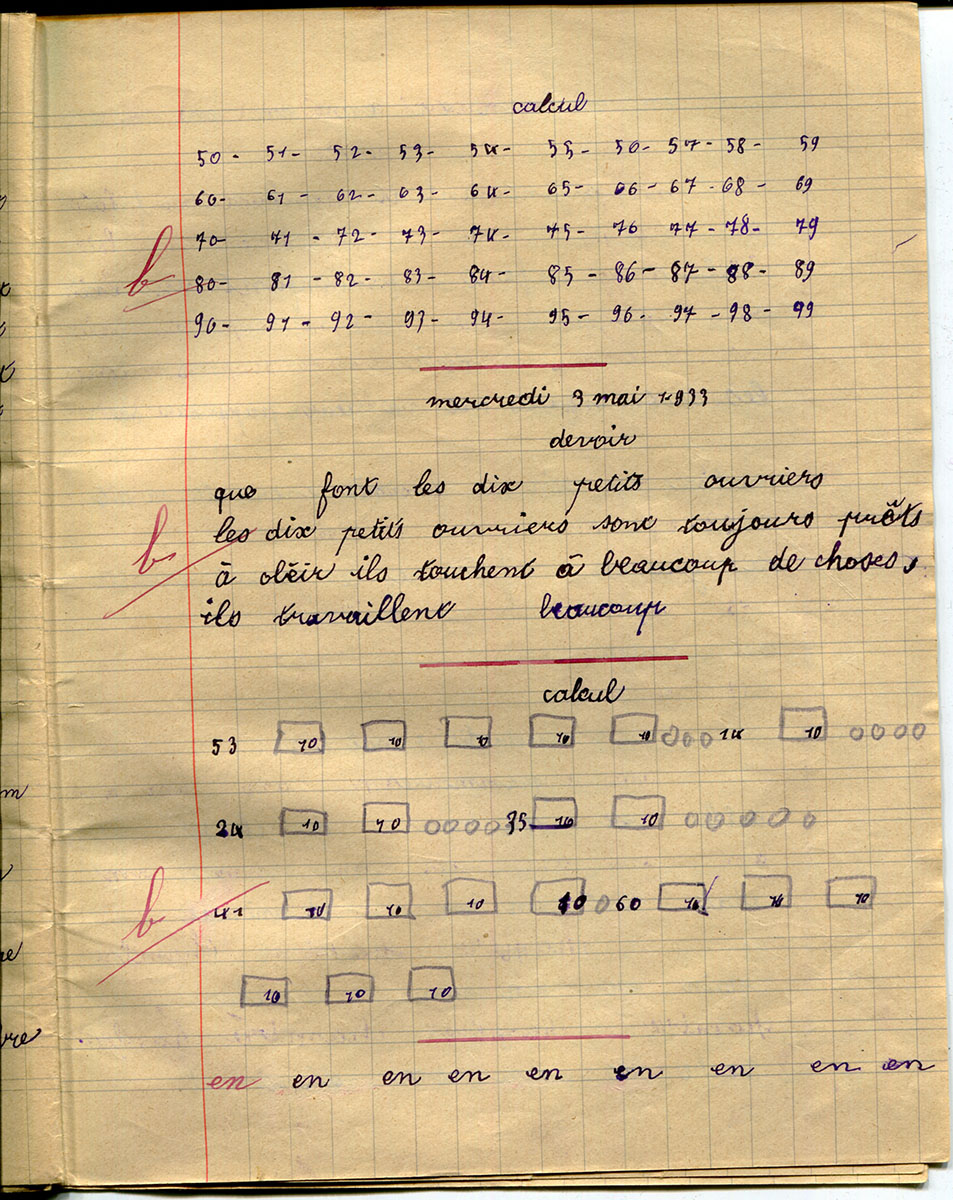 calcul
50- 51- 52- 53- 54- 55- 50- 57- 58- 59
60- 61- 62- 63- 64- 65- 66- 67- 68- 69
70- 71- 72- 73- 74- 75- 76 77- 78- 79
b
80- 81- 82- 83- 84- 85- 86- 87- 88- 89
90- 91- 92- 93- 94- 95- 96- 97- 98- 99
mercredi 3 mai 1933
devoir
que font les dix petits ouvriers
les dix petits ouvriers sont toujours prêts
b
à obéir ils touchent à beaucoup de choses,
ils travaillent beaucoup
calcul
53 10 10 10 10 10 14 10
24 10 10 35 10 10
b
41 10 10 10 10 60 10 10 10
10 10 10
en en en en en en en en en